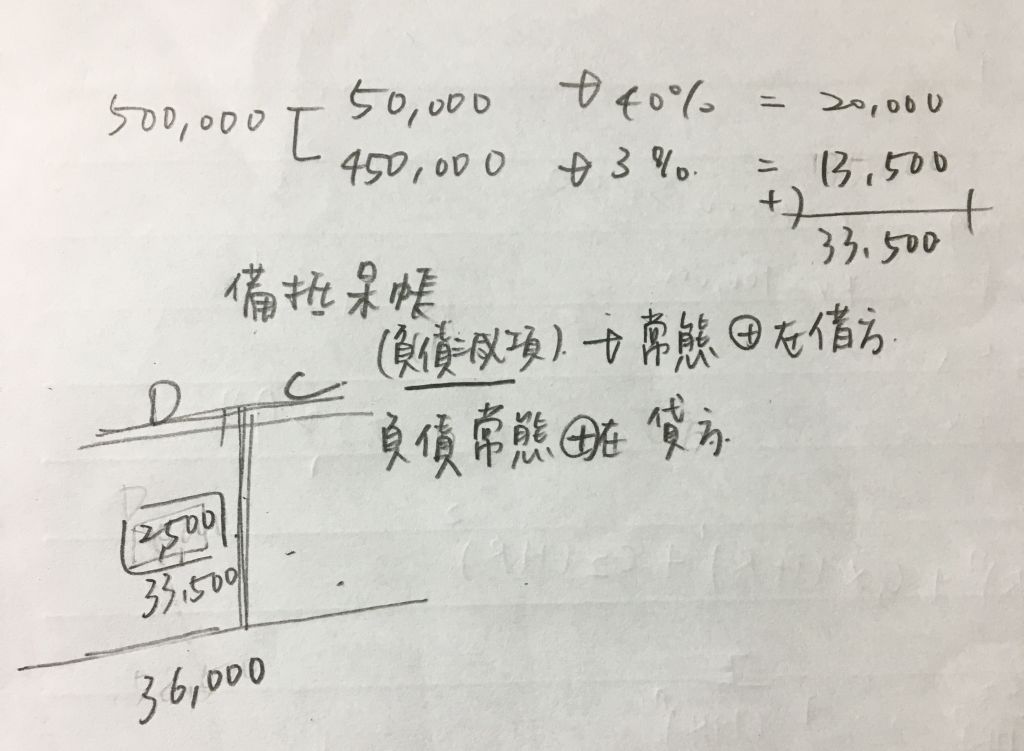 500,000 [ 50,000 → 40% = 20,000
450,000 → 3% = 13,500
+) 33,500
備抵呆帳
(負債減項). → 常態⊕在借方.
負債常態⊕在貸方.
D C
2,500
33,500
36,000